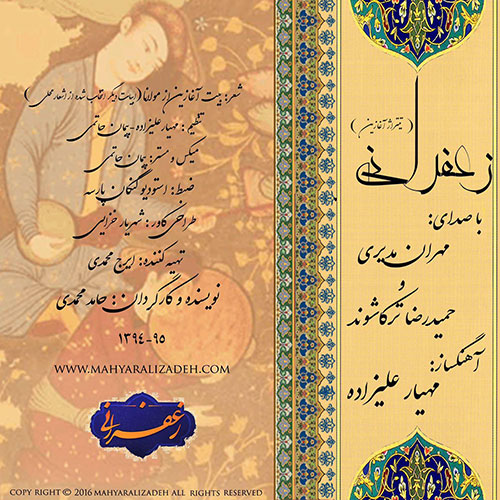 زعفرانی
(تیتراژ آغازین)
با صدای:
مهران مدیری
و
حمیدرضا ترکاشوند
آهنگساز:
مهیار علیزاده
شعر: بیت آغازین از مولانا (ابیات دیگر انتخاب شده از اشعار محلی)
تنظیم: مهیار علیزاده-پیمان حاتمی
میکس و مستر: پیمان حاتمی
ضبط: استودیو گنگان پارسه
طراحی کاور: شهریار خزایی
تهیه کننده: ایرج محمدی
نویسنده و کارگردان: حامد محمدی
۱۳۹۴-۹۵
WWW.MAHYARALIZADEH.COM
زعفرانی
COPY RIGHT © 2016 MAHYARALIZADEH ALL RIGHTS RESERVED